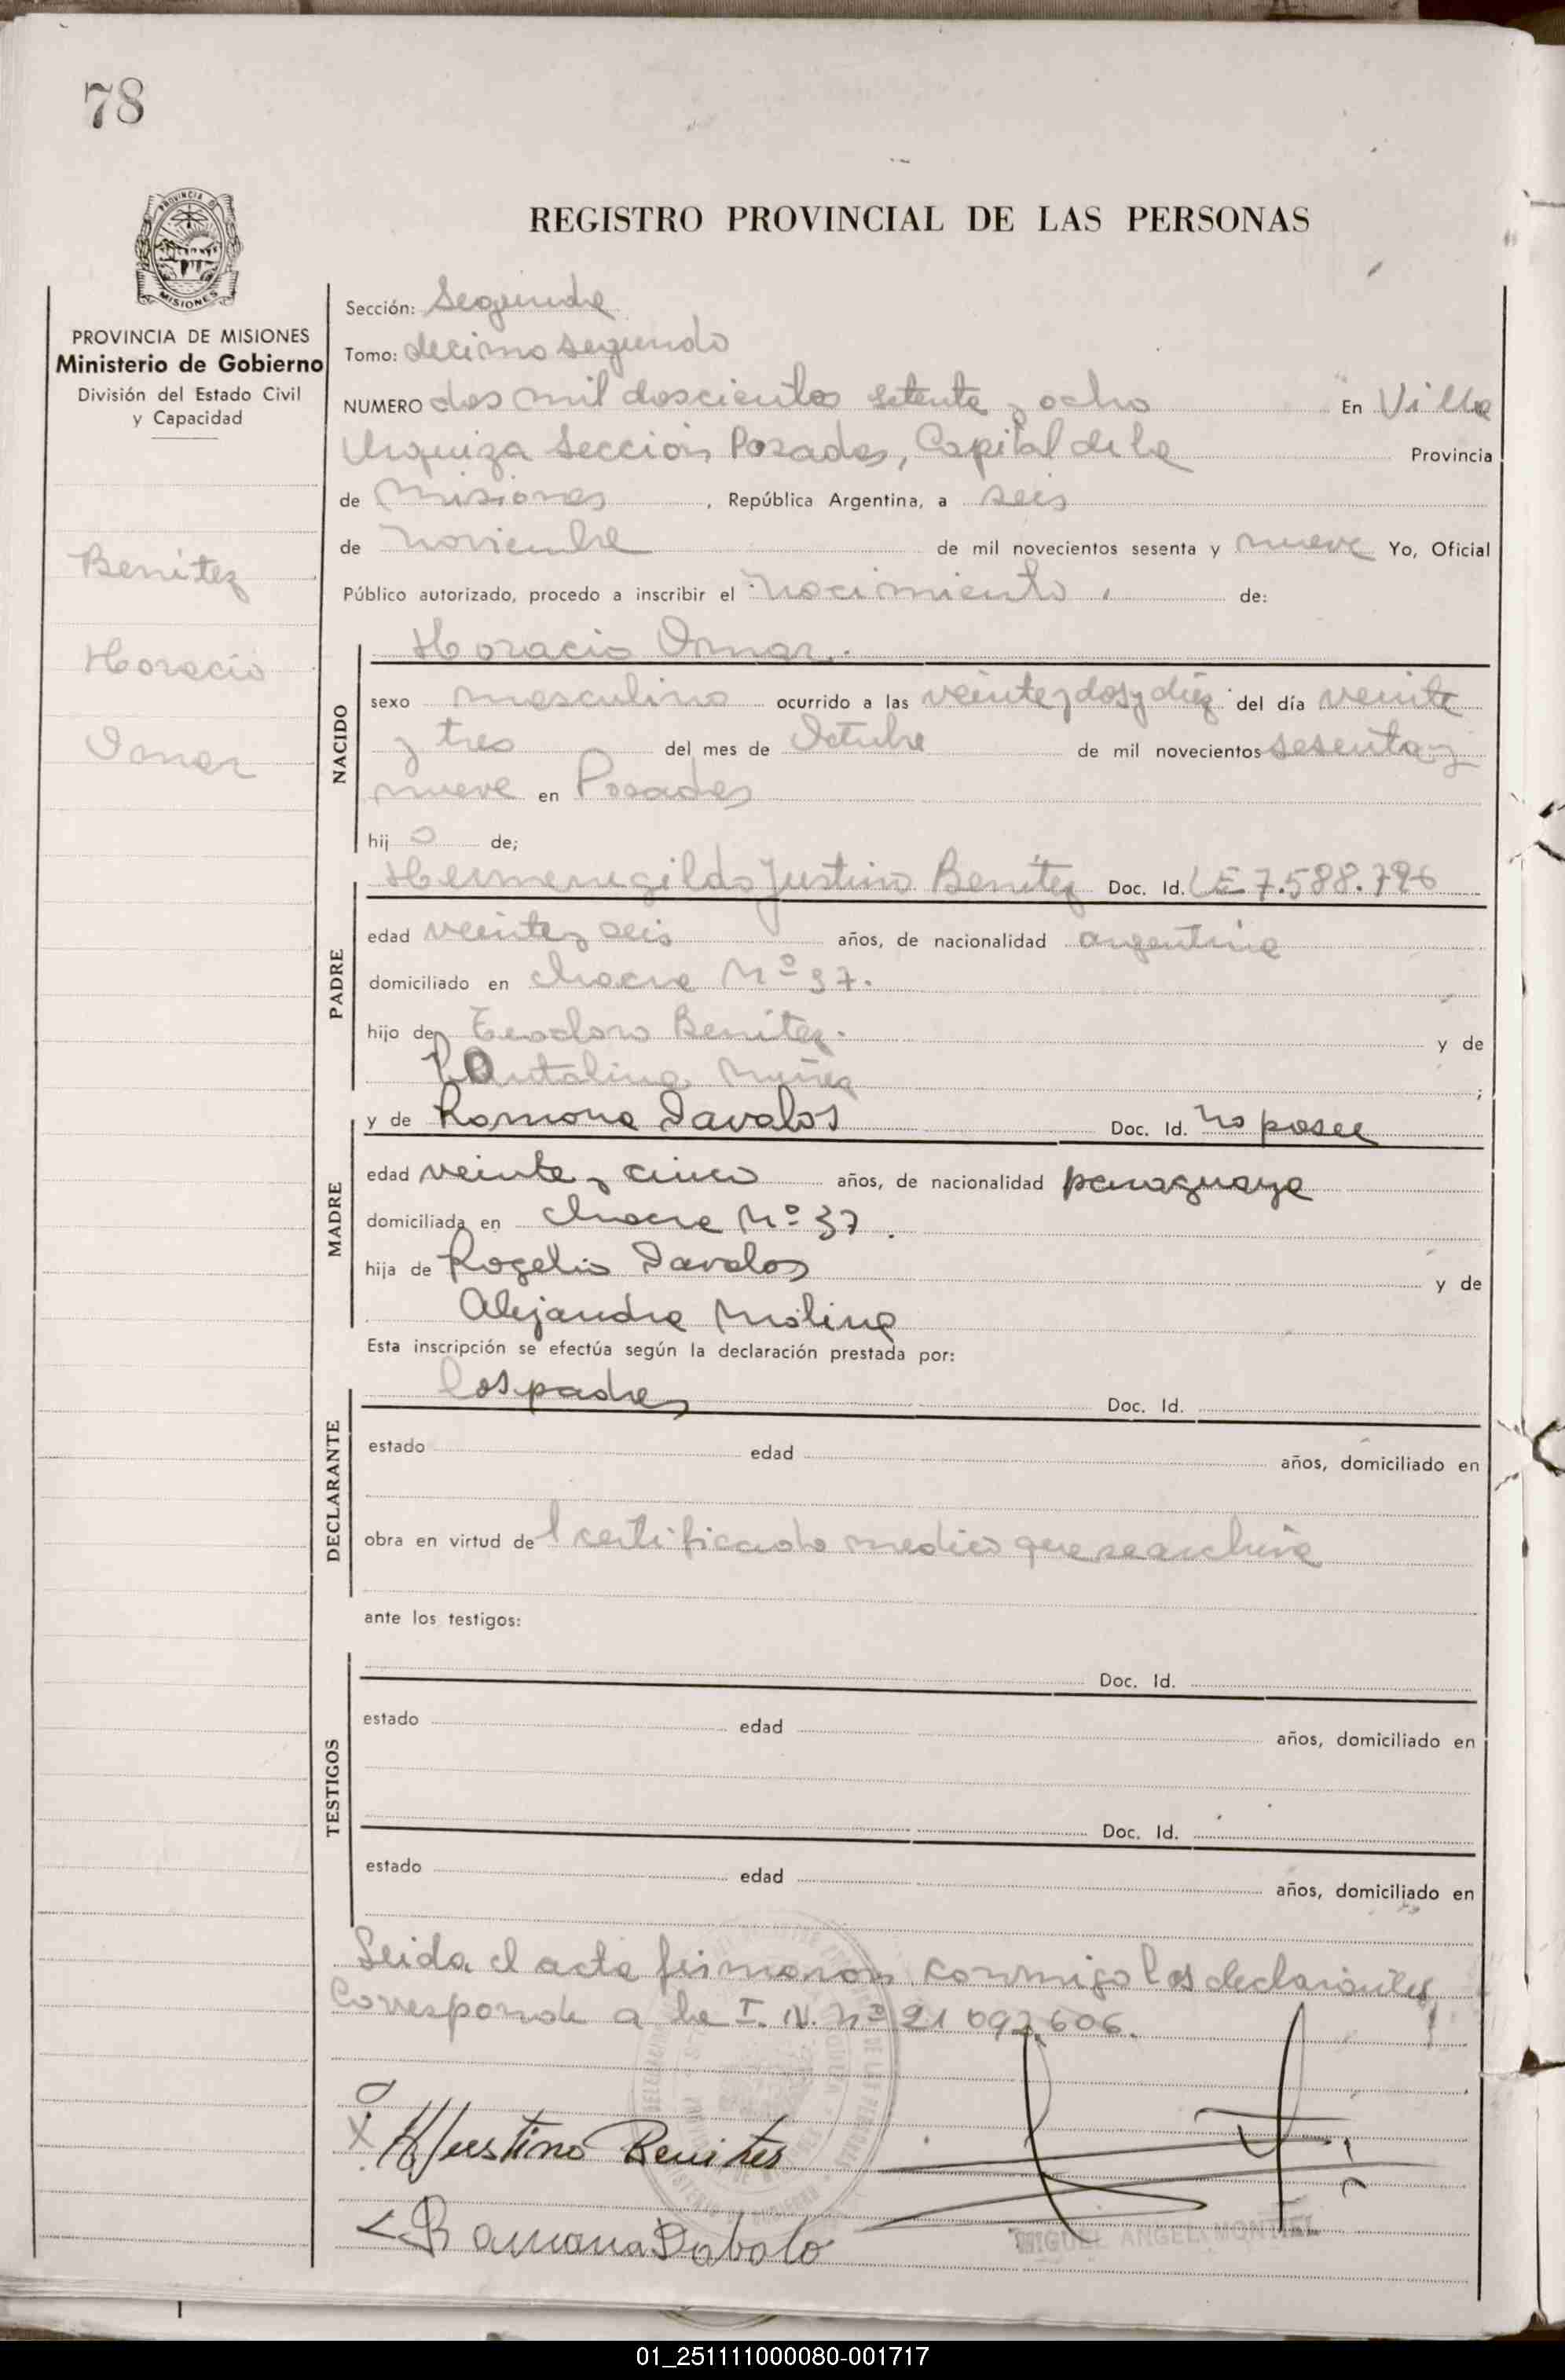 78
REGISTRO PROVINCIAL DE LAS PERSONAS
PROVINCIA DE MISIONES
Ministerio de Gobierno
División del Estado Civil
y Capacidad
Benitez
Horacio
Omar
Sección: Segunda
Tomo: decimo segundo
NUMERO dos mil doscientos setenta y ocho En Villa
Urquiza Sección Posadas, Capital de la Provincia
de Misiones, República Argentina, a seis
de noviembre de mil novecientos sesenta y nueve Yo, Oficial
Público autorizado, procedo a inscribir el nacimiento, de:
Horacio Omar.
NACIDO
sexo masculino ocurrido a las veinte y dos y diez del día veinte
y tres del mes de Octubre de mil novecientos sesenta y
nueve en Posadas
hij o de;
Hermenegildo Justino Benitez Doc. Id. LE 7.588.796
PADRE
edad veinte y seis años, de nacionalidad argentina
domiciliado en chacra Nº 37.
hijo de Teodoro Benitez. y de
Pantalina Nuñez ;
y de Ramona Davalos Doc. Id. no posee
MADRE
edad veinte y cinco años, de nacionalidad paraguaya
domiciliada en chacra Nº 37.
hija de Rogelio Davalos y de
Alejandra Molina
Esta inscripción se efectúa según la declaración prestada por:
los padres Doc. Id.
DECLARANTE
estado edad años, domiciliado en
obra en virtud del certificado medico que se archiva
ante los testigos:
Doc. Id.
TESTIGOS
estado edad años, domiciliado en
Doc. Id.
estado edad años, domiciliado en
Leida el acta firmaron conmigo los declarantes
Corresponde a la I. N. nº 21 092.606.
HJustino Benites
Ramona Dabalo
MIGUEL ANGEL MONTIEL
01_251111000080-001717